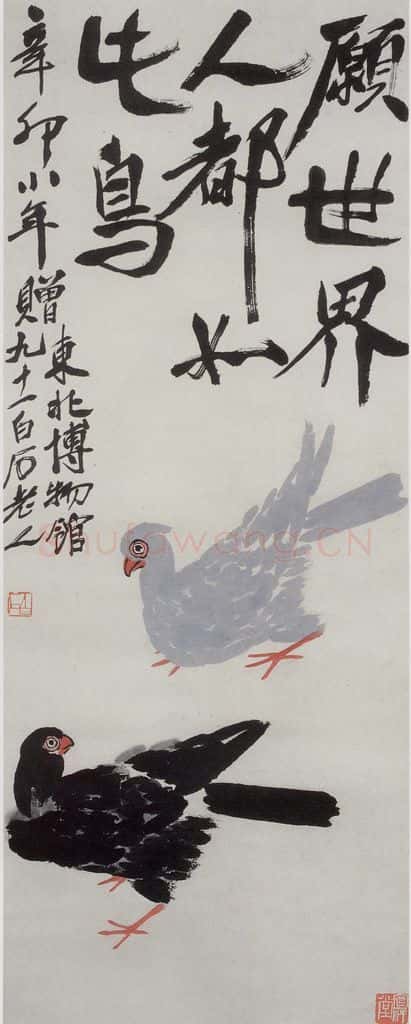 願世界
人都如
此鳥
辛卯小年贈
東北博物館
九十一白石老人
Shufawang.CN